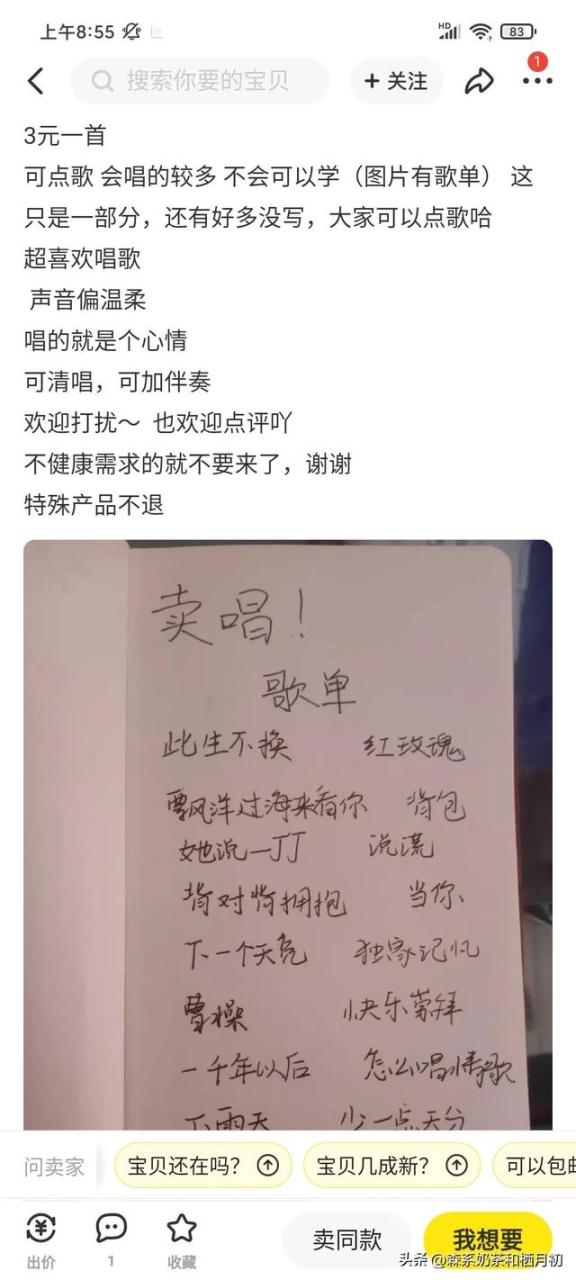 上午8:55
HD
83
搜索你要的宝贝
+ 关注
1
3元一首
可点歌 会唱的较多 不会可以学（图片有歌单） 这
只是一部分，还有好多没写，大家可以点歌哈
超喜欢唱歌
声音偏温柔
唱的就是个心情
可清唱，可加伴奏
欢迎打扰～ 也欢迎点评吖
不健康需求的就不要来了，谢谢
特殊产品不退
卖唱！
歌单
此生不换 红玫瑰
飘洋过海来看你 背包
她说 一丁丁 说谎
背对背拥抱 当你
下一个天亮 独家记忆
曹操 快乐崇拜
一千年以后 怎么唱情歌
下雨天 少一点天分
问卖家
宝贝还在吗？
宝贝几成新？
可以包邮
出价
1
收藏
卖同款
我想要
头条 @森系奶茶和栖月初